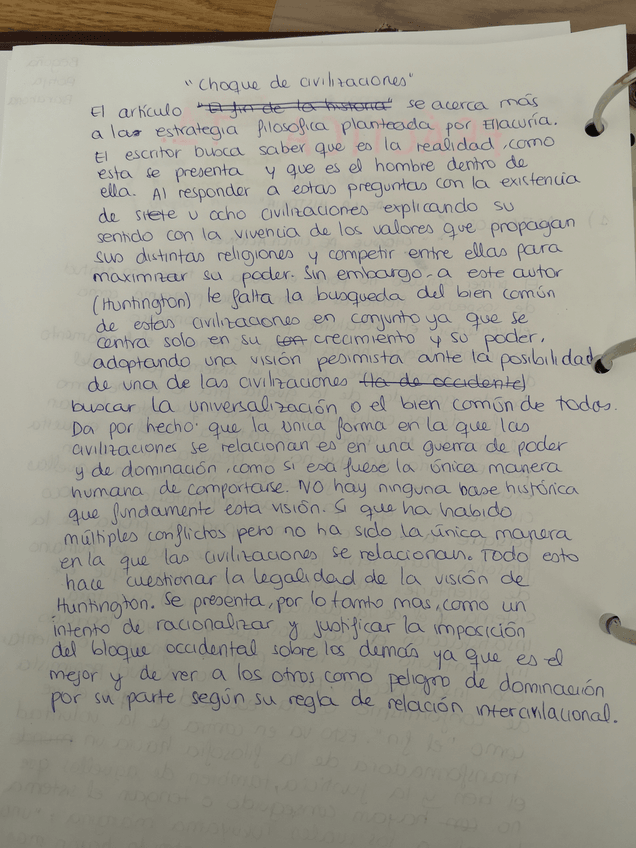 "Choque de civilizaciones"
El artículo "El fin de la historia" se acerca más
a la estrategia filosofica planteada por Ellacuría.
El escritor busca saber que es la realidad, como
esta se presenta y que es el hombre dentro de
ella. Al responder a estas preguntas con la existencia
de siete u ocho civilizaciones explicando su
sentido con la vivencia de los valores que propagan
sus distintas religiones y competir entre ellas para
maximizar su poder. Sin embargo, a este autor
(Huntington) le falta la busqueda del bien común
de estas civilizaciones en conjunto ya que se
centra solo en su con crecimiento y su poder,
adoptando una visión pesimista ante la posibilidad
de una de las civilizaciones (la de occidente)
buscar la universalización o el bien común de todos.
Da por hecho que la única forma en la que las
civilizaciones se relacionan es en una guerra de poder
y de dominación, como si esa fuese la única manera
humana de comportarse. No hay ninguna base histórica
que fundamente esta visión. Si que ha habido
múltiples conflictos pero no ha sido la única manera
en la que las civilizaciones se relacionan. Todo esto
hace cuestionar la legalidad de la visión de
Huntington. Se presenta, por lo tanto mas, como un
intento de racionalizar y justificar la imposición
del bloque occidental sobre los demás ya que es el
mejor y de ver a los otros como peligro de dominación
por su parte según su regla de relación intercivilacional.